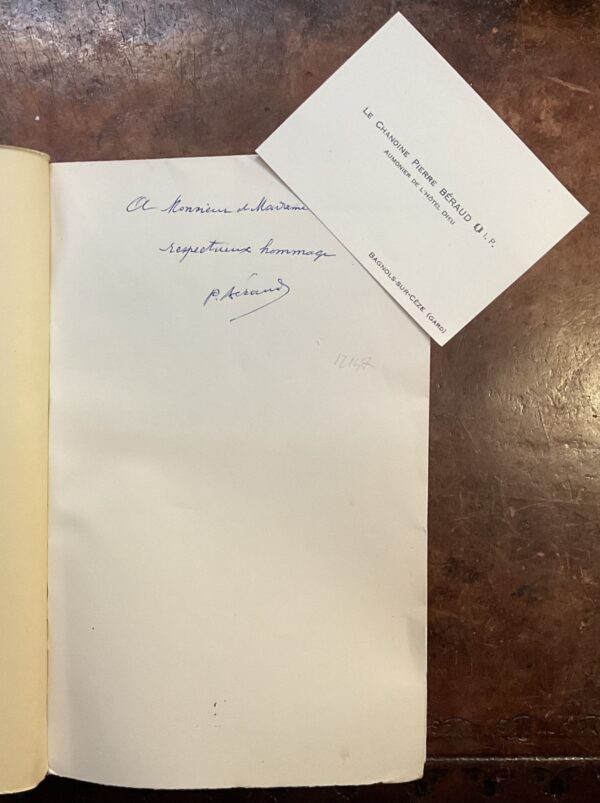 A Monsieur et Madame
respectueux hommage
P. Béraud
LE CHANOINE PIERRE BÉRAUD I. P.
AUMONIER DE L'HÔTEL DIEU
BAGNOLS-SUR-CÈZE (GARD)